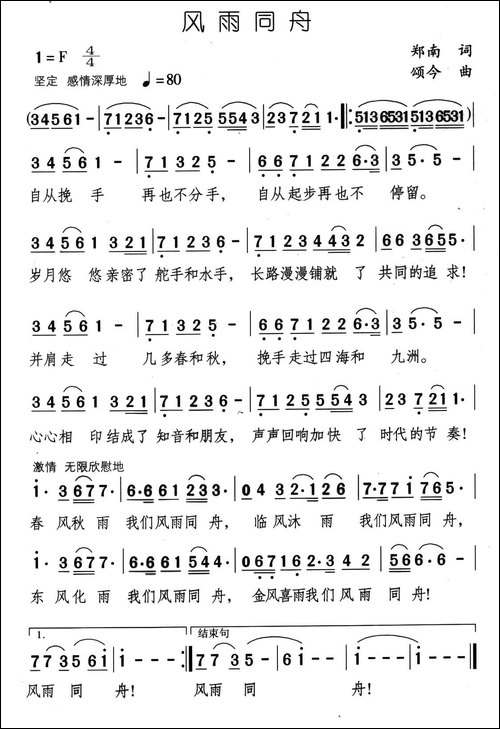 风雨同舟
1=F 4/4
郑南 词
坚定 感情深厚地 ♩=80
颂今 曲
(34561- | 71236- | 7125543 | 237211· ‖: 51365315136531)
34561- | 71325- | 6671226·3 | 35·5-
自从挽 手 再也不分手, 自从起步再也不 停留。
34561321 | 71236- | 712554432 | 663655·
岁月悠 悠亲密了 舵手和水手, 长路漫漫铺就 了 共同的追 求!
34561- | 71325- | 6671226·3 | 35·5-
并肩走 过 几多春和秋, 挽手走过四海和 九洲。
34561321 | 71236- | 7125543 | 237211·
心心相 印结成了 知音和朋友, 声声回响加快 了 时代的节 奏!
激情 无限欣慰地
1·3677· | 6·661233· | 0432·126 | 7·771765·
春 风秋 雨 我们风雨同 舟, 临风沐 雨 我们风雨同 舟,
1·3677· | 6·6·61554· | 067162·342 | 566·6-
东 风化 雨 我们风雨同 舟, 金风喜雨我们 风 雨 同 舟!
1. 结束句
773561 | 1--- :‖ 7735- | 61- | 1--- ‖
风雨 同 舟! 风雨 同 舟!